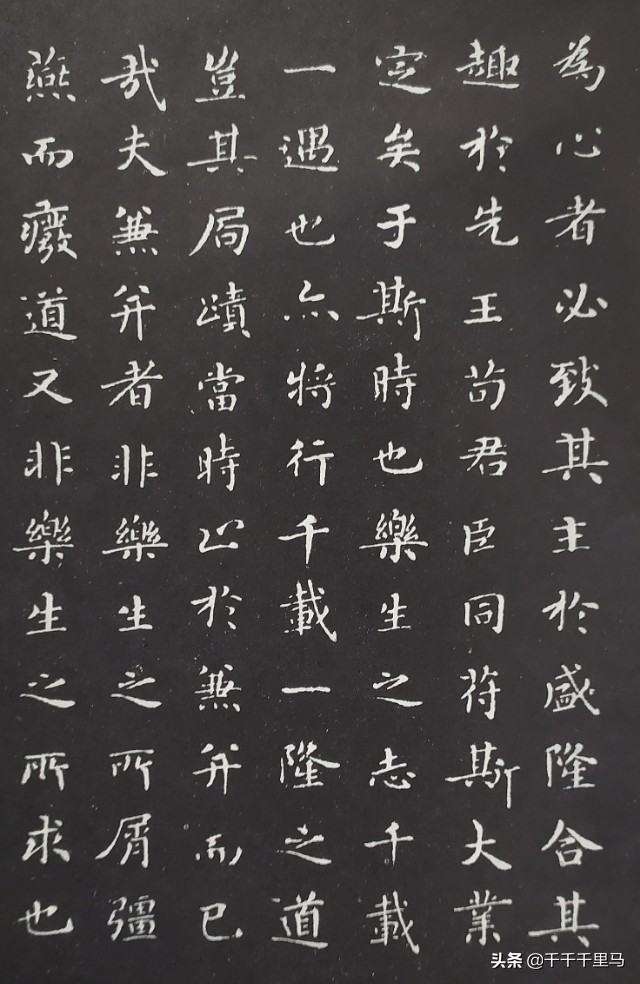 為心者必致其主於盛隆合其
趣於先王苟君臣同符斯大業
定矣于斯時也樂生之志千載
一遇也亦將行千載一隆之道
豈其局蹟當時止於兼并而已
哉夫兼并者非樂生之所屑彊
燕而癈道又非樂生之所求也
头条 @千千千里马